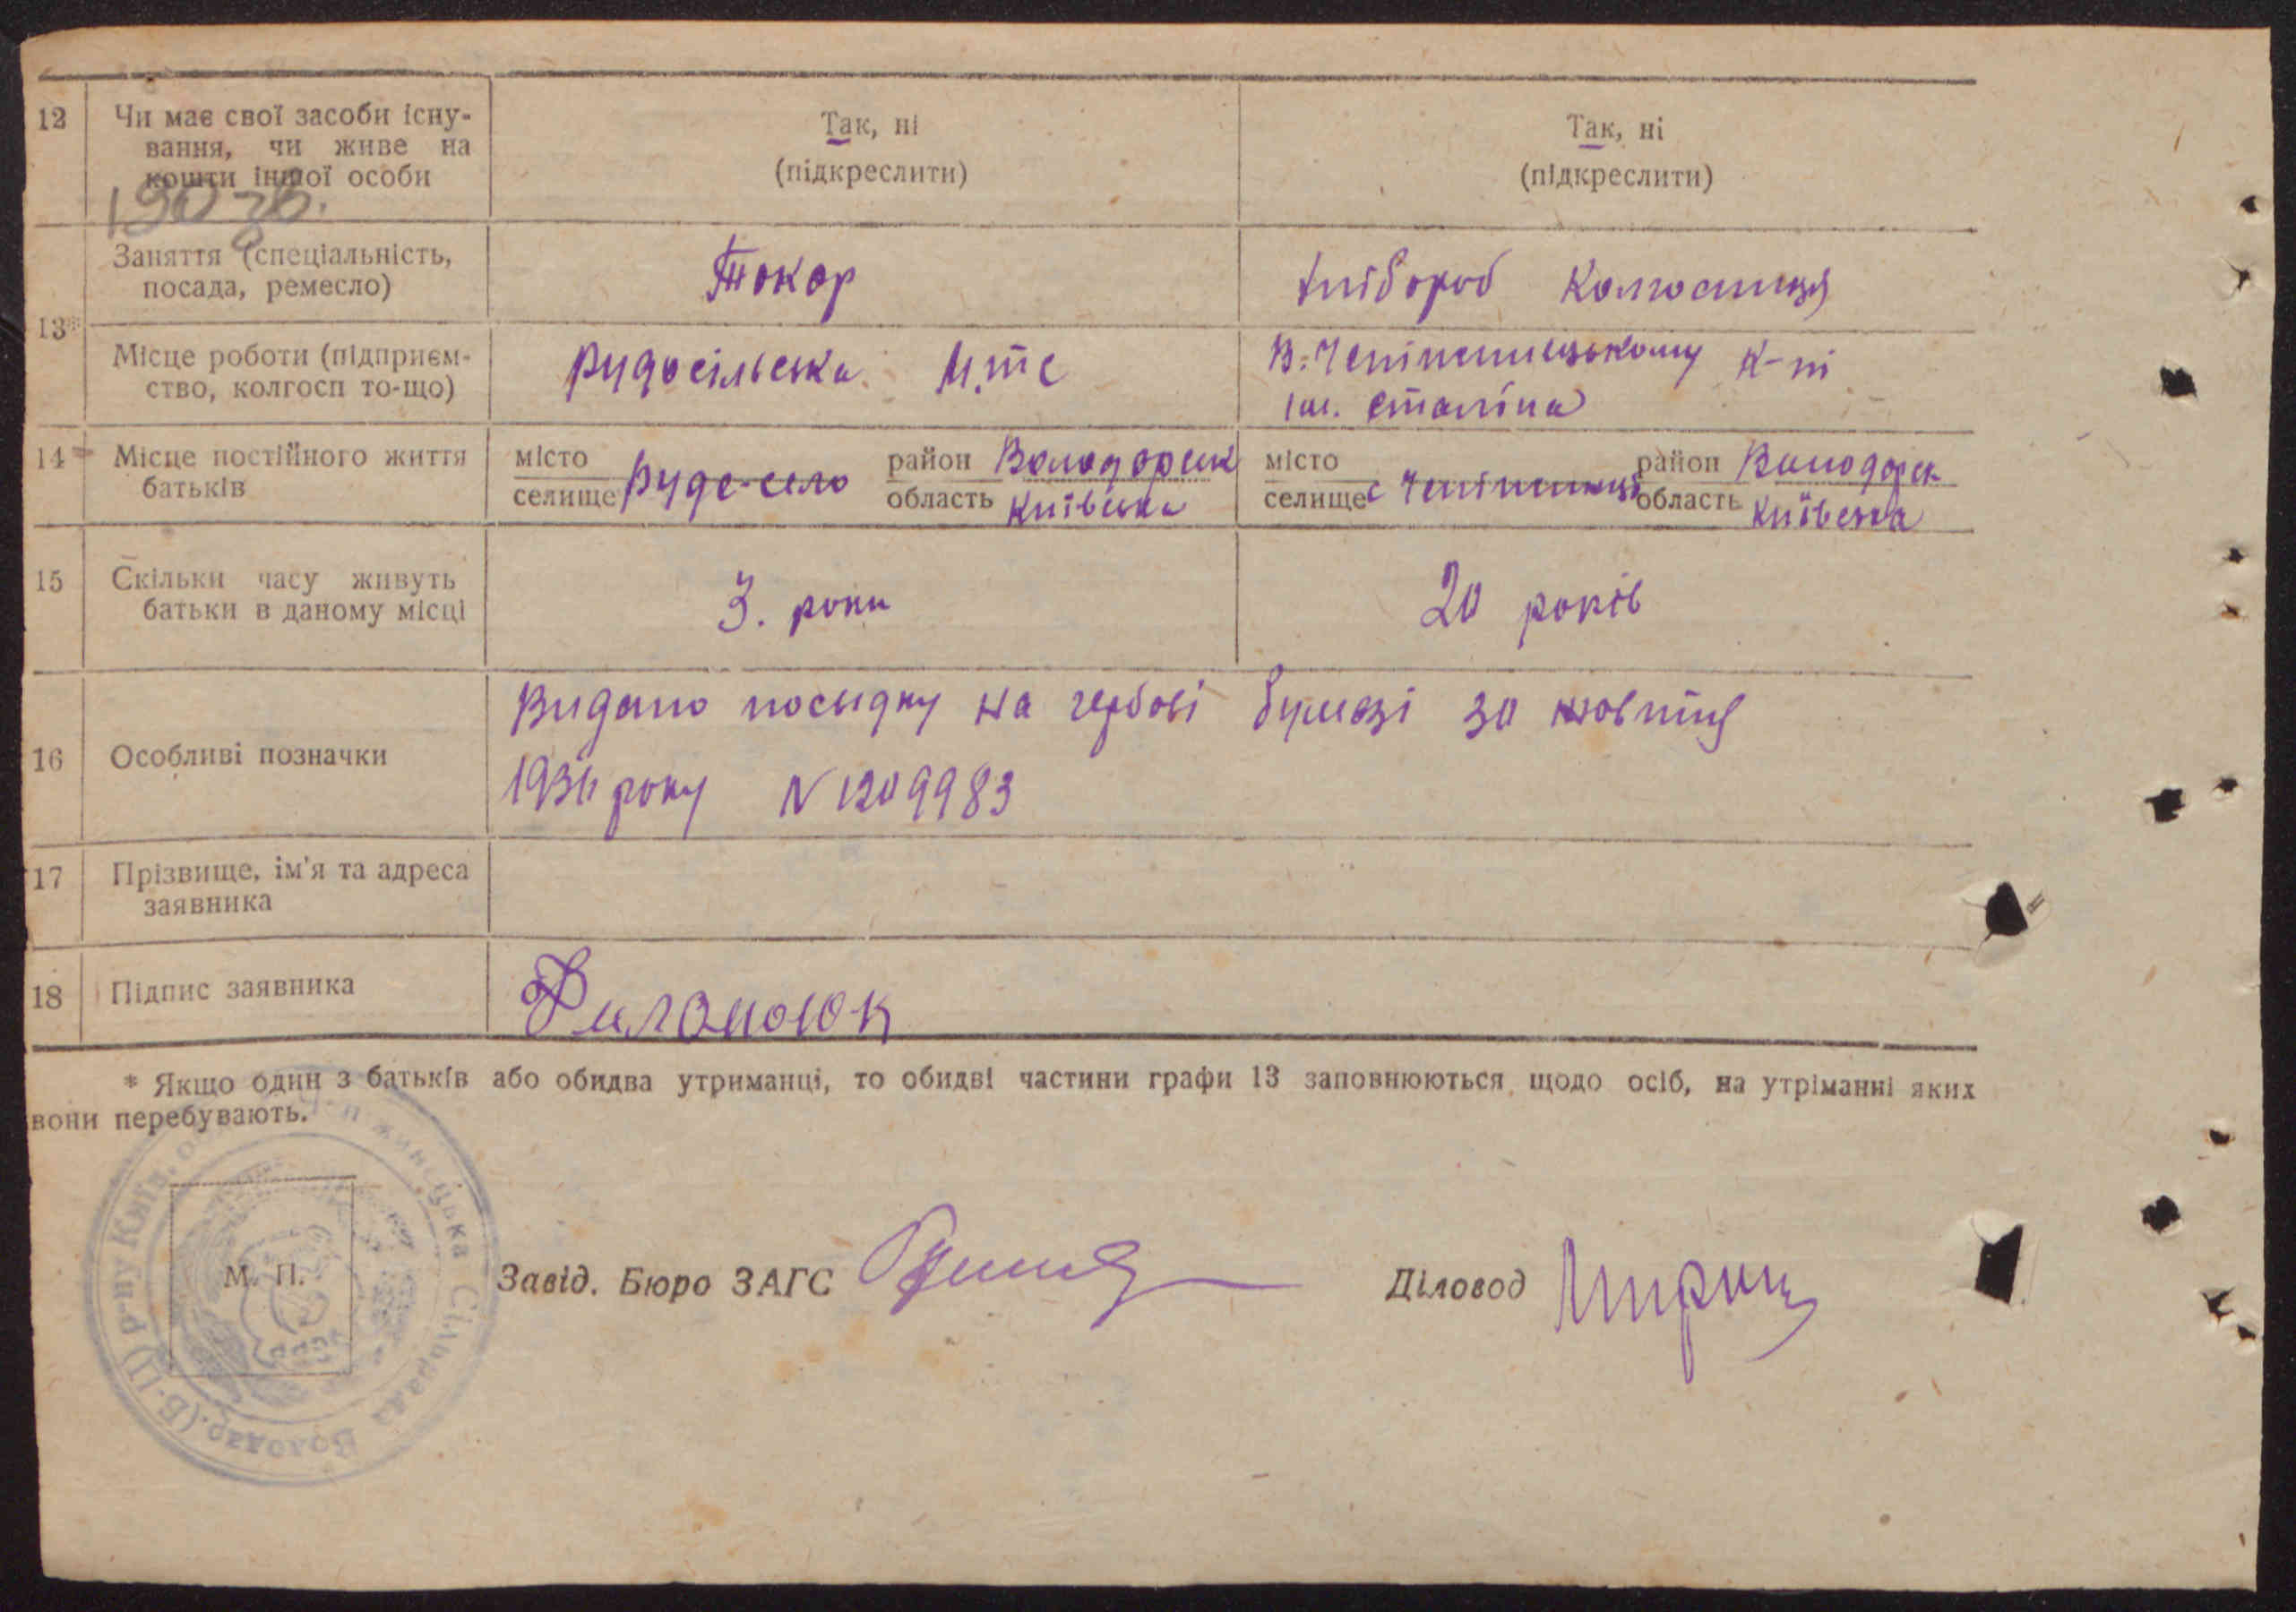 12
Чи має свої засоби існу-
вання, чи живе на
кошти іншої особи
Так, ні
(підкреслити)
Так, ні
(підкреслити)
13*
Заняття (спеціальність,
посада, ремесло)
Токар
Хлібороб Колгоспниця
Місце роботи (підприєм-
ство, колгосп то-що)
Рудосільська М.т.с
к-пі
ім. Сталіна
14*
Місце постійного життя
батьків
місто
селище Руде-село
район Володарськ
область Київська
місто
селище с
район Володарськ
область Київська
15
Скільки часу живуть
батьки в даному місці
3. роки
20 років
16
Особливі позначки
Видано посвідку на гербові бумазі 30 жовтня
1936 року N 1209983
17
Прізвище, ім'я та адреса
заявника
18
Підпис заявника
Филонюк
* Якщо один з батьків або обидва утриманці, то обидві частини графи 13 заповнюються щодо осіб, на утріманні яких
вони перебувають.
М. П.
Сільрада Володар.(Б-Ц) р-ну Київ.
Завід. Бюро ЗАГС
Діловод